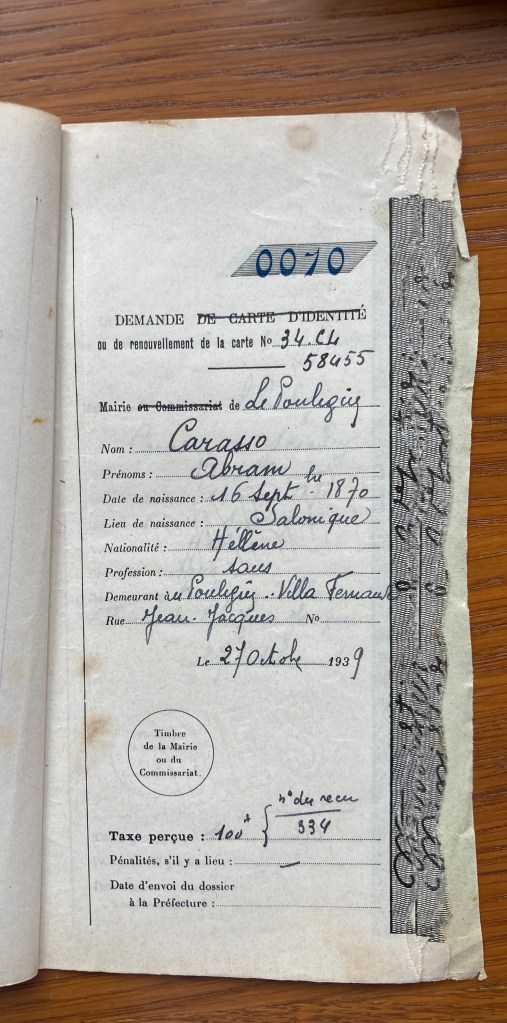 0070
DEMANDE DE CARTE D'IDENTITÉ
ou de renouvellement de la carte No 34.CL
58455
Mairie ou Commissariat de Le Pouliguen
Nom : Carasso
Prénoms : Abram
Date de naissance : 16 Septbre 1870
Lieu de naissance : Salonique
Nationalité : Hellène
Profession : sans
Demeurant à u Pouliguen - Villa Fernande
Rue Jean-Jacques No
Le 27 Octobre 1939
Timbre
de la Mairie
ou du
Commissariat.
n° du recu
Taxe perçue : 100f { 334
Pénalités, s'il y a lieu : —
Date d'envoi du dossier
à la Préfecture :